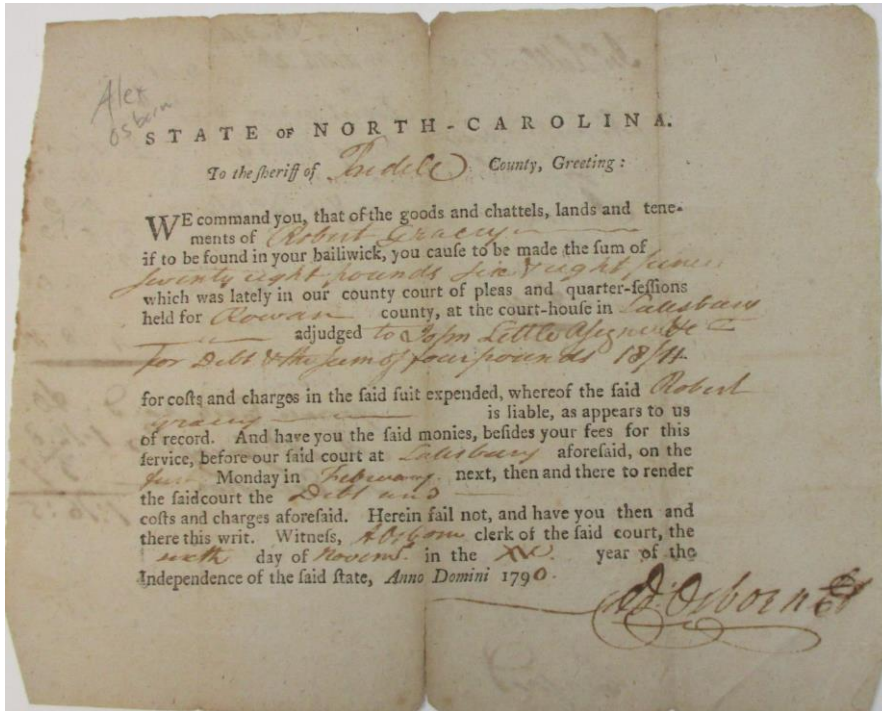 Alex
Osborn
STATE OF NORTH-CAROLINA.
To the ſheriff of Iredell County, Greeting:
WE command you, that of the goods and chattels, lands and tene-
ments of Robert Gracey
if to be found in your bailiwick, you cauſe to be made the ſum of
ſeventy eight pounds ſix & eight pence
which was lately in our county court of pleas and quarter-ſeſſions
held for Rowan county, at the court-houſe in Salisbury
adjudged to John Little Aſignee &c
for Debt & the ſum of four pounds 18/4
for coſts and charges in the ſaid ſuit expended, whereof the ſaid Robert
Gracey is liable, as appears to us
of record. And have you the ſaid monies, beſides your fees for this
ſervice, before our ſaid court at Salisbury aforeſaid, on the
firſt Monday in February next, then and there to render
the ſaid court the Debt and
coſts and charges aforeſaid. Herein fail not, and have you then and
there this writ. Witneſs, AOsborn clerk of the ſaid court, the
ſixth day of Novemr. in the XV. year of the
Independence of the ſaid ſtate, Anno Domini 1790.
Ad. Osborn